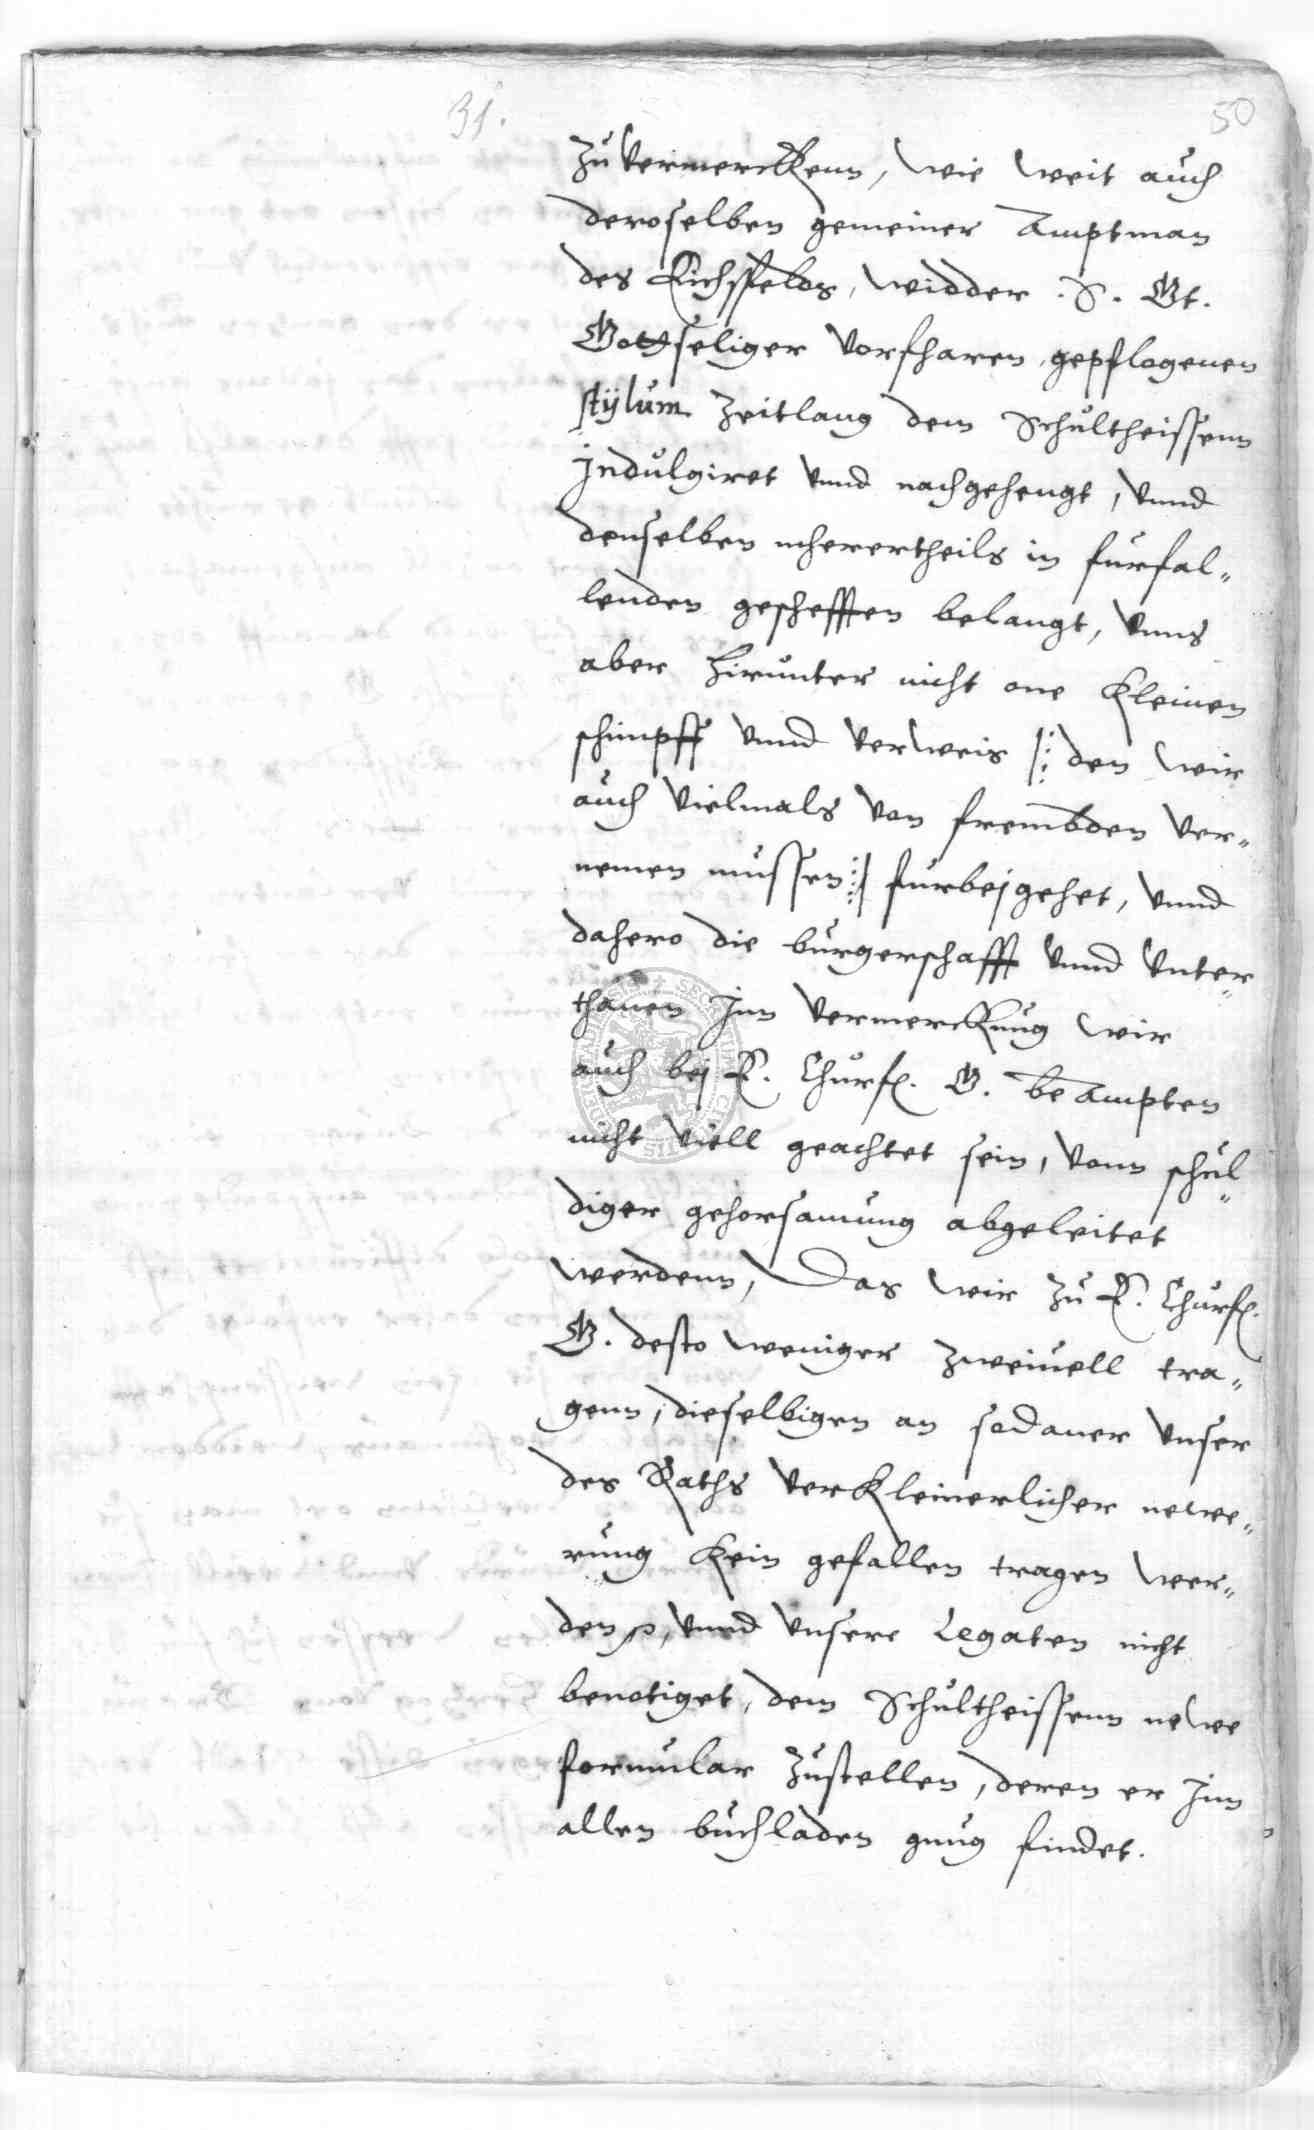 31.
50
zuvermerckenn, wie weit auch
deroselben gemeiner Amptman
des Eichsfelds, widder .S. Gt.
Gottseliger Vorfharen gepflogenen
stÿlum Zeitlang dem Schultheissenn
Indulgiret vnnd nachgehengt, vnnd
denselben mherertheils in furfal„
lenden geschefften belangt, vnns
aber hirunter nicht one kleinen
schimpff vnnd verweis |: den wir
auch vielmals von frembden ver„
nemen mussen :| furbej gehet, vnnd
dahero die burgerschafft vnnd vnter„
thanen Inn vermerckung wir
auch bej E. Churf. G. beAmpten
nicht viell geachtet sein, vonn schul„
diger gehorsamung abgeleitet
werdenn, Das wir zu E. Churf.
G. desto weniger zweiuell tra„
genn, dieselbigen an sodaner vnser
des Raths verkleinerlicher newe„
rung kein gefallen tragen wer„
den, vnnd vnsere Legaten nicht
benotiget, dem Schultheissenn newe
formular zustellen, deren er Inn
allen buchladen gnug findet.